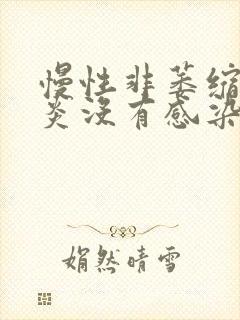 慢性非萎缩
炎没有感染
娟然晴雪